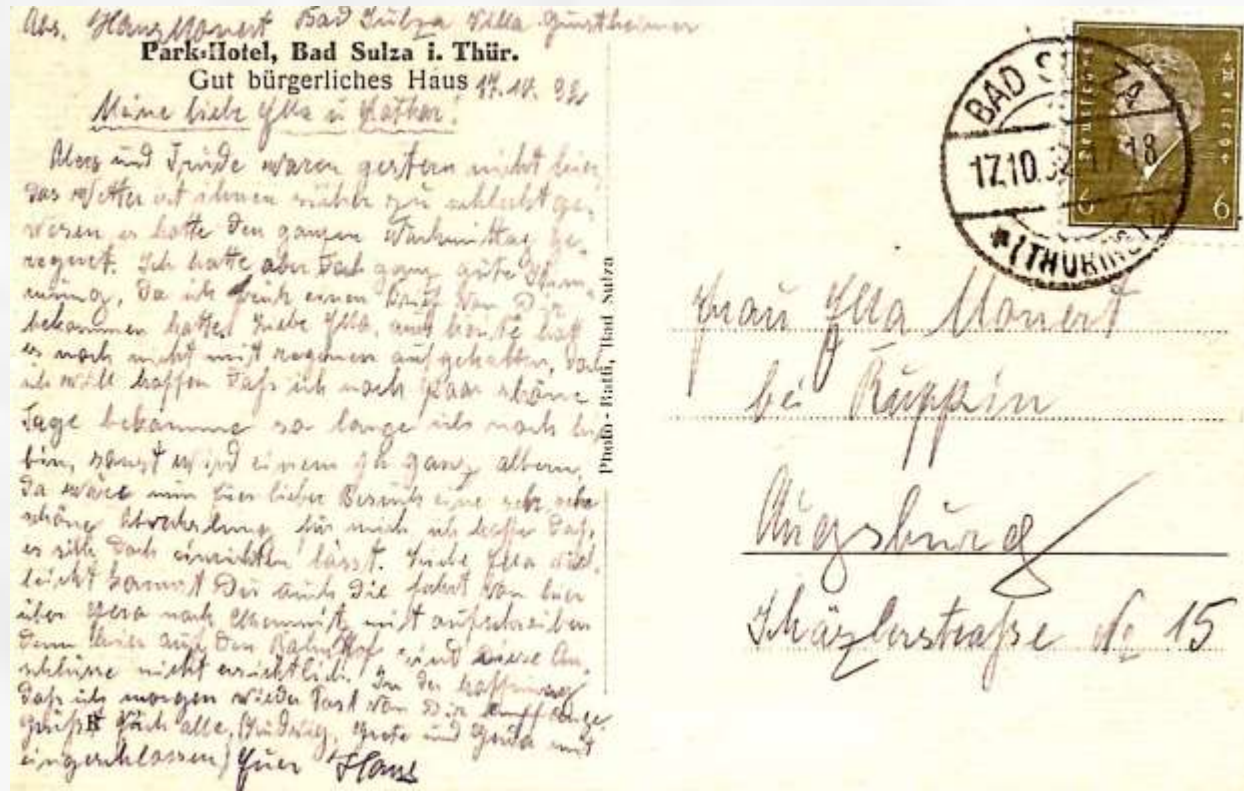 Abs. Hans Monert Bad Sulza Villa
Park-Hotel, Bad Sulza i. Thür.
Gut bürgerliches Haus
17.10. 32
Meine liebe Ella u Lothar!
und Trude waren gestern nicht hier,
das Wetter ist ihnen sicher zu schlecht ge-
wesen, es hatte den ganzen Nachmittag ge-
regnet. Ich hatte aber doch ganz gute Stim-
mung, da ich früh einen Brief von Dir
bekommen hatte. Liebe Ella, auch heute hat
es noch nicht mit regnen aufgehalten, doch
ich will hoffen daß ich noch paar schöne
Tage bekomme so lange ich noch hier
bin, sonst wird einem ganz albern.
Da wäre nun Euer lieber Besuch eine sehr sehr
schöne Abwechslung für mich ich hoffe daß
es sich doch einrichten lässt. Liebe Ella viel-
leicht kannst Du auch die fahrt von hier
über Gera nach Chemnitz mit aufschreiben
denn hier auf den Bahnhof sind diese An-
schlüsse nicht ersichtlich. In der hoffnung
daß ich morgen wieder Post von Dir empfange
grüßt Euch alle, (Ludwig, Grete und Gerda mit
eingeschlossen) Euer Hans
Photo-Rath, Bad Sulza
BAD SULZA
17.10.32
18
* (THÜRING.)
Deutsches Reich
6 6
Frau Ella Monert
bei Ruppin
Augsburg
Schäzlerstraße No 15